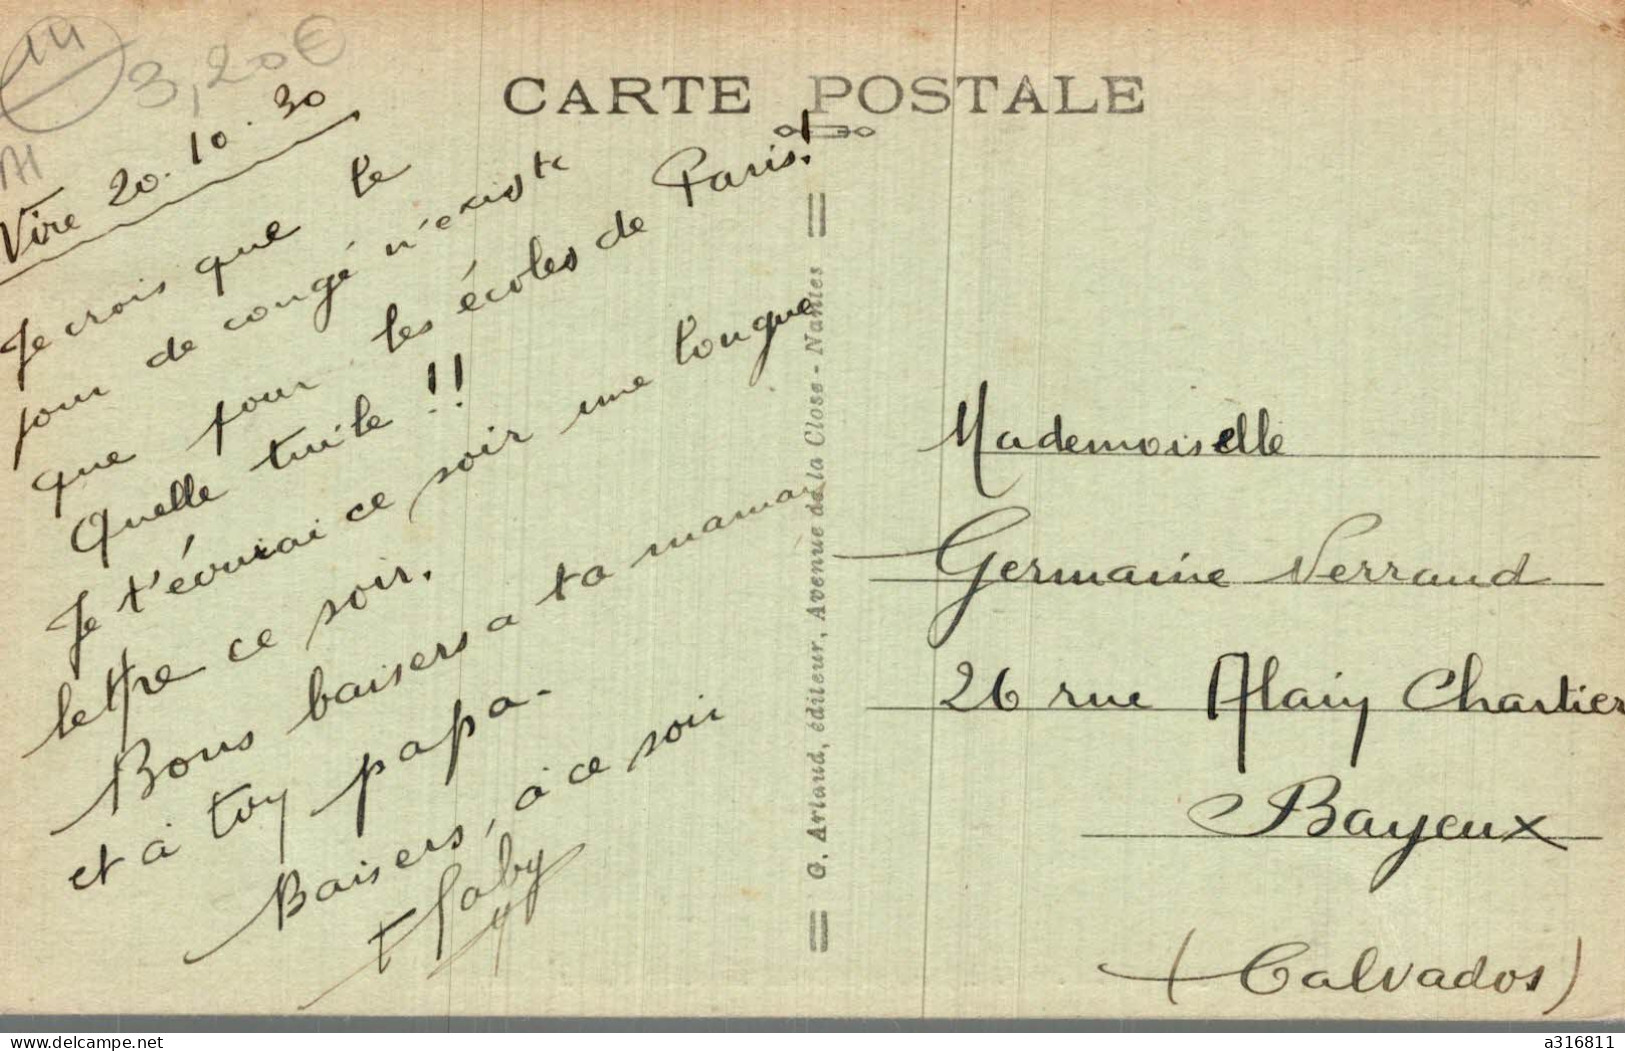 14
3,20€
A1
CARTE POSTALE
Vire 20.10.30
Je crois que le
jour de congé n'existe
que pour les écoles de Paris!
Quelle tuile !!
Je t'écrirai ce soir une longue
lettre ce soir.
Bons baisers a ta maman
et à toy papa-
Baisers, à ce soir
Gaby
G. Artaud, éditeur, Avenue de la Close - Nantes
Mademoiselle
Germaine Verraud
26 rue Alain Chartier
Bayeux
(Calvados)
www.delcampe.net
a316811